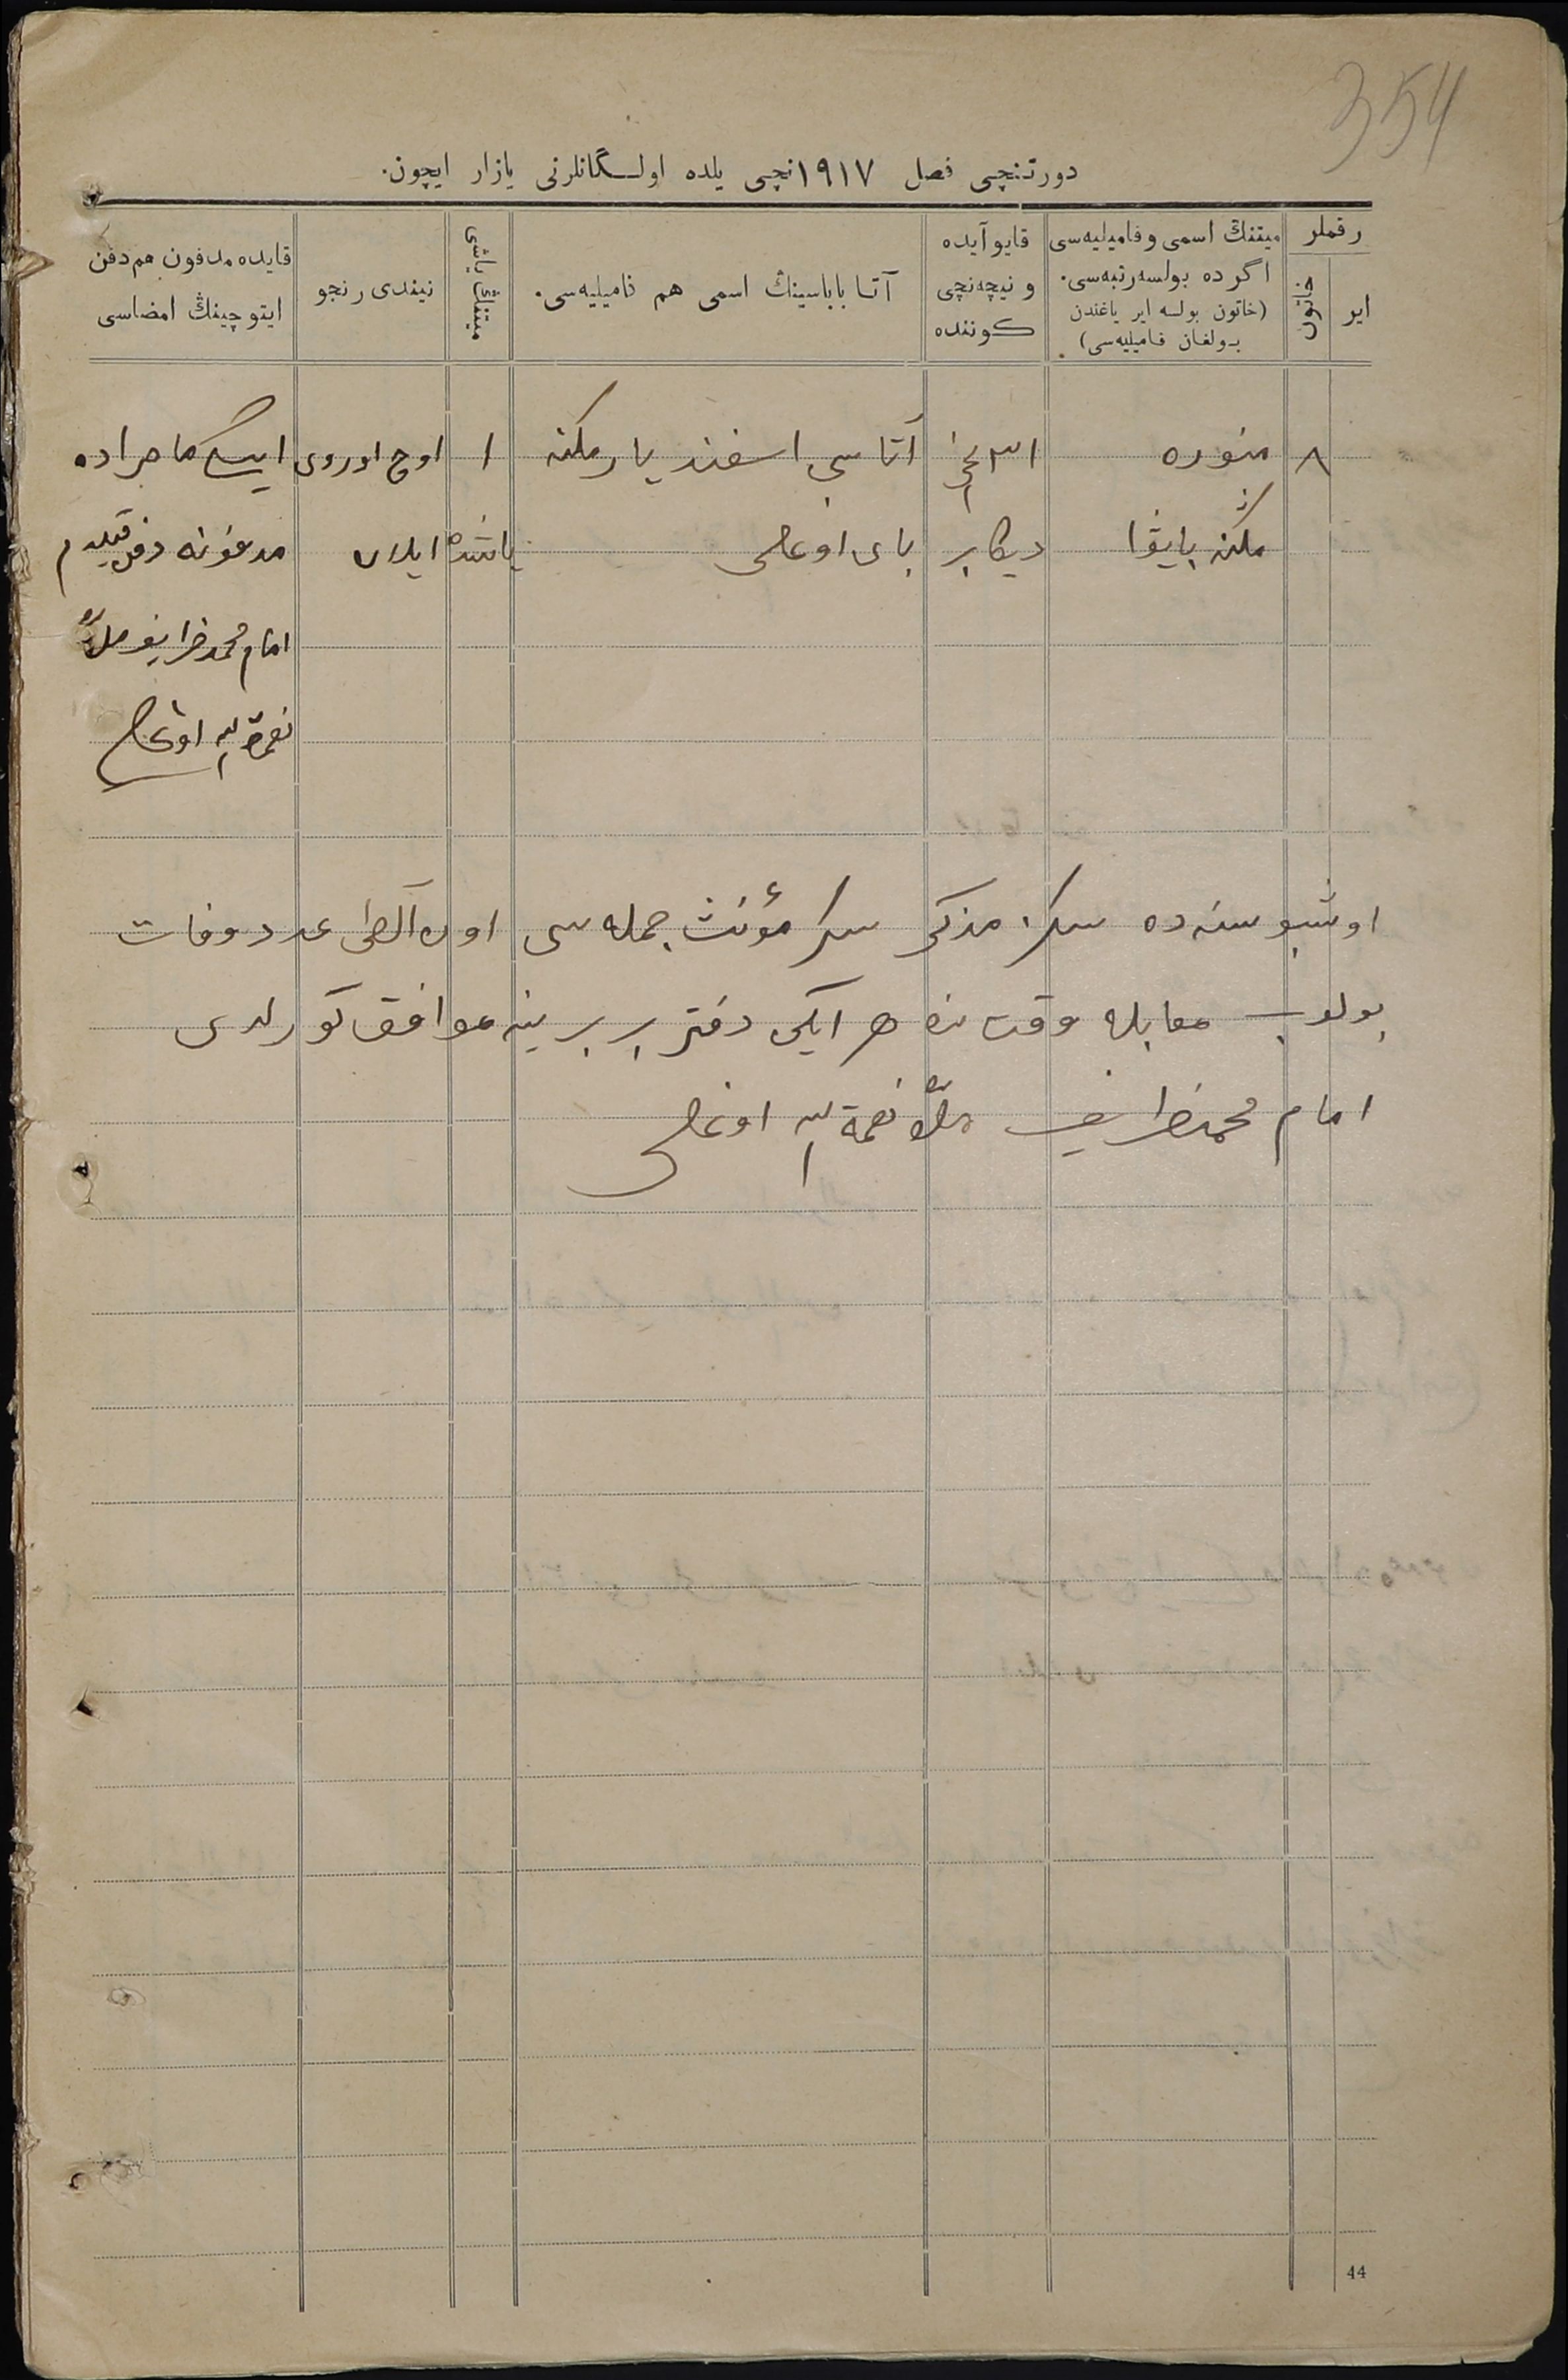 354
دورتنچی فصل ۱۹۱۷نچی یلده اولـگانلرنی یازار ایچون.
رقملر
ایر
خاتون
میتنڭ اسمی و فامیلیه‌سی
اگر ده بولسه رتبه‌سی.
(خاتون بولسه ایر یاغندن
بولغان فامیلیه‌سی)
قایو آیده
و نیچه‌نچی
کوننده
آتا باباسینڭ اسمی هم فامیلیه‌سی.
میتنڭ یاشی
نیندی رنجو
قایده مدفون هم دفن
ایتوچینڭ امضاسی
۸ منوره ۳۱ نچی آتاسی اسفندیار ملکنه ۱ اوچ اوروی ایسکی ماحراده
بایفا دیکابر بای اوغلی یاشنده ایلان مدفونه دفن قیلدم
امام محمدظریف ملا
نعمة الله اوغلی
اوشبو سنه ده سکز مذکر سکز مؤنث جمله سی اون آلطی عدد وفات
بولوب مقابله وقتنده هر ایکی دفتر بر برینه موافق کورلدی
امام محمدظریف ملا نعمة الله اوغلی
44